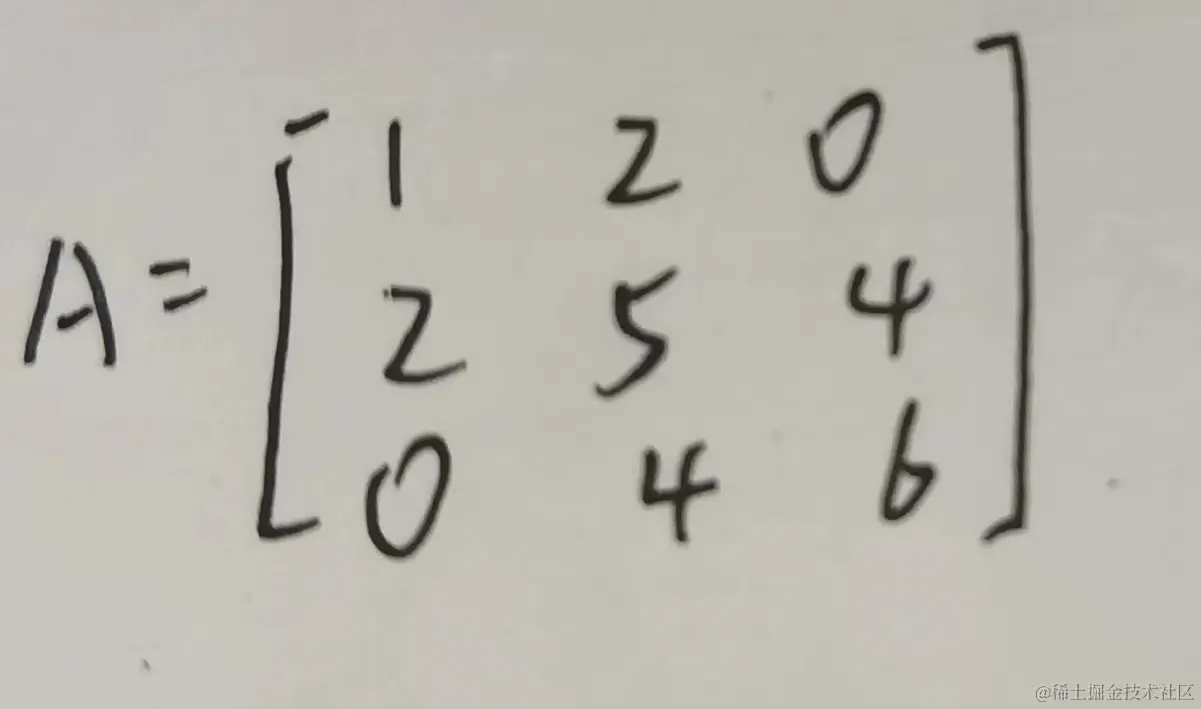 1 2 0
A = 2 5 4
0 4 6
@稀土掘金技术社区